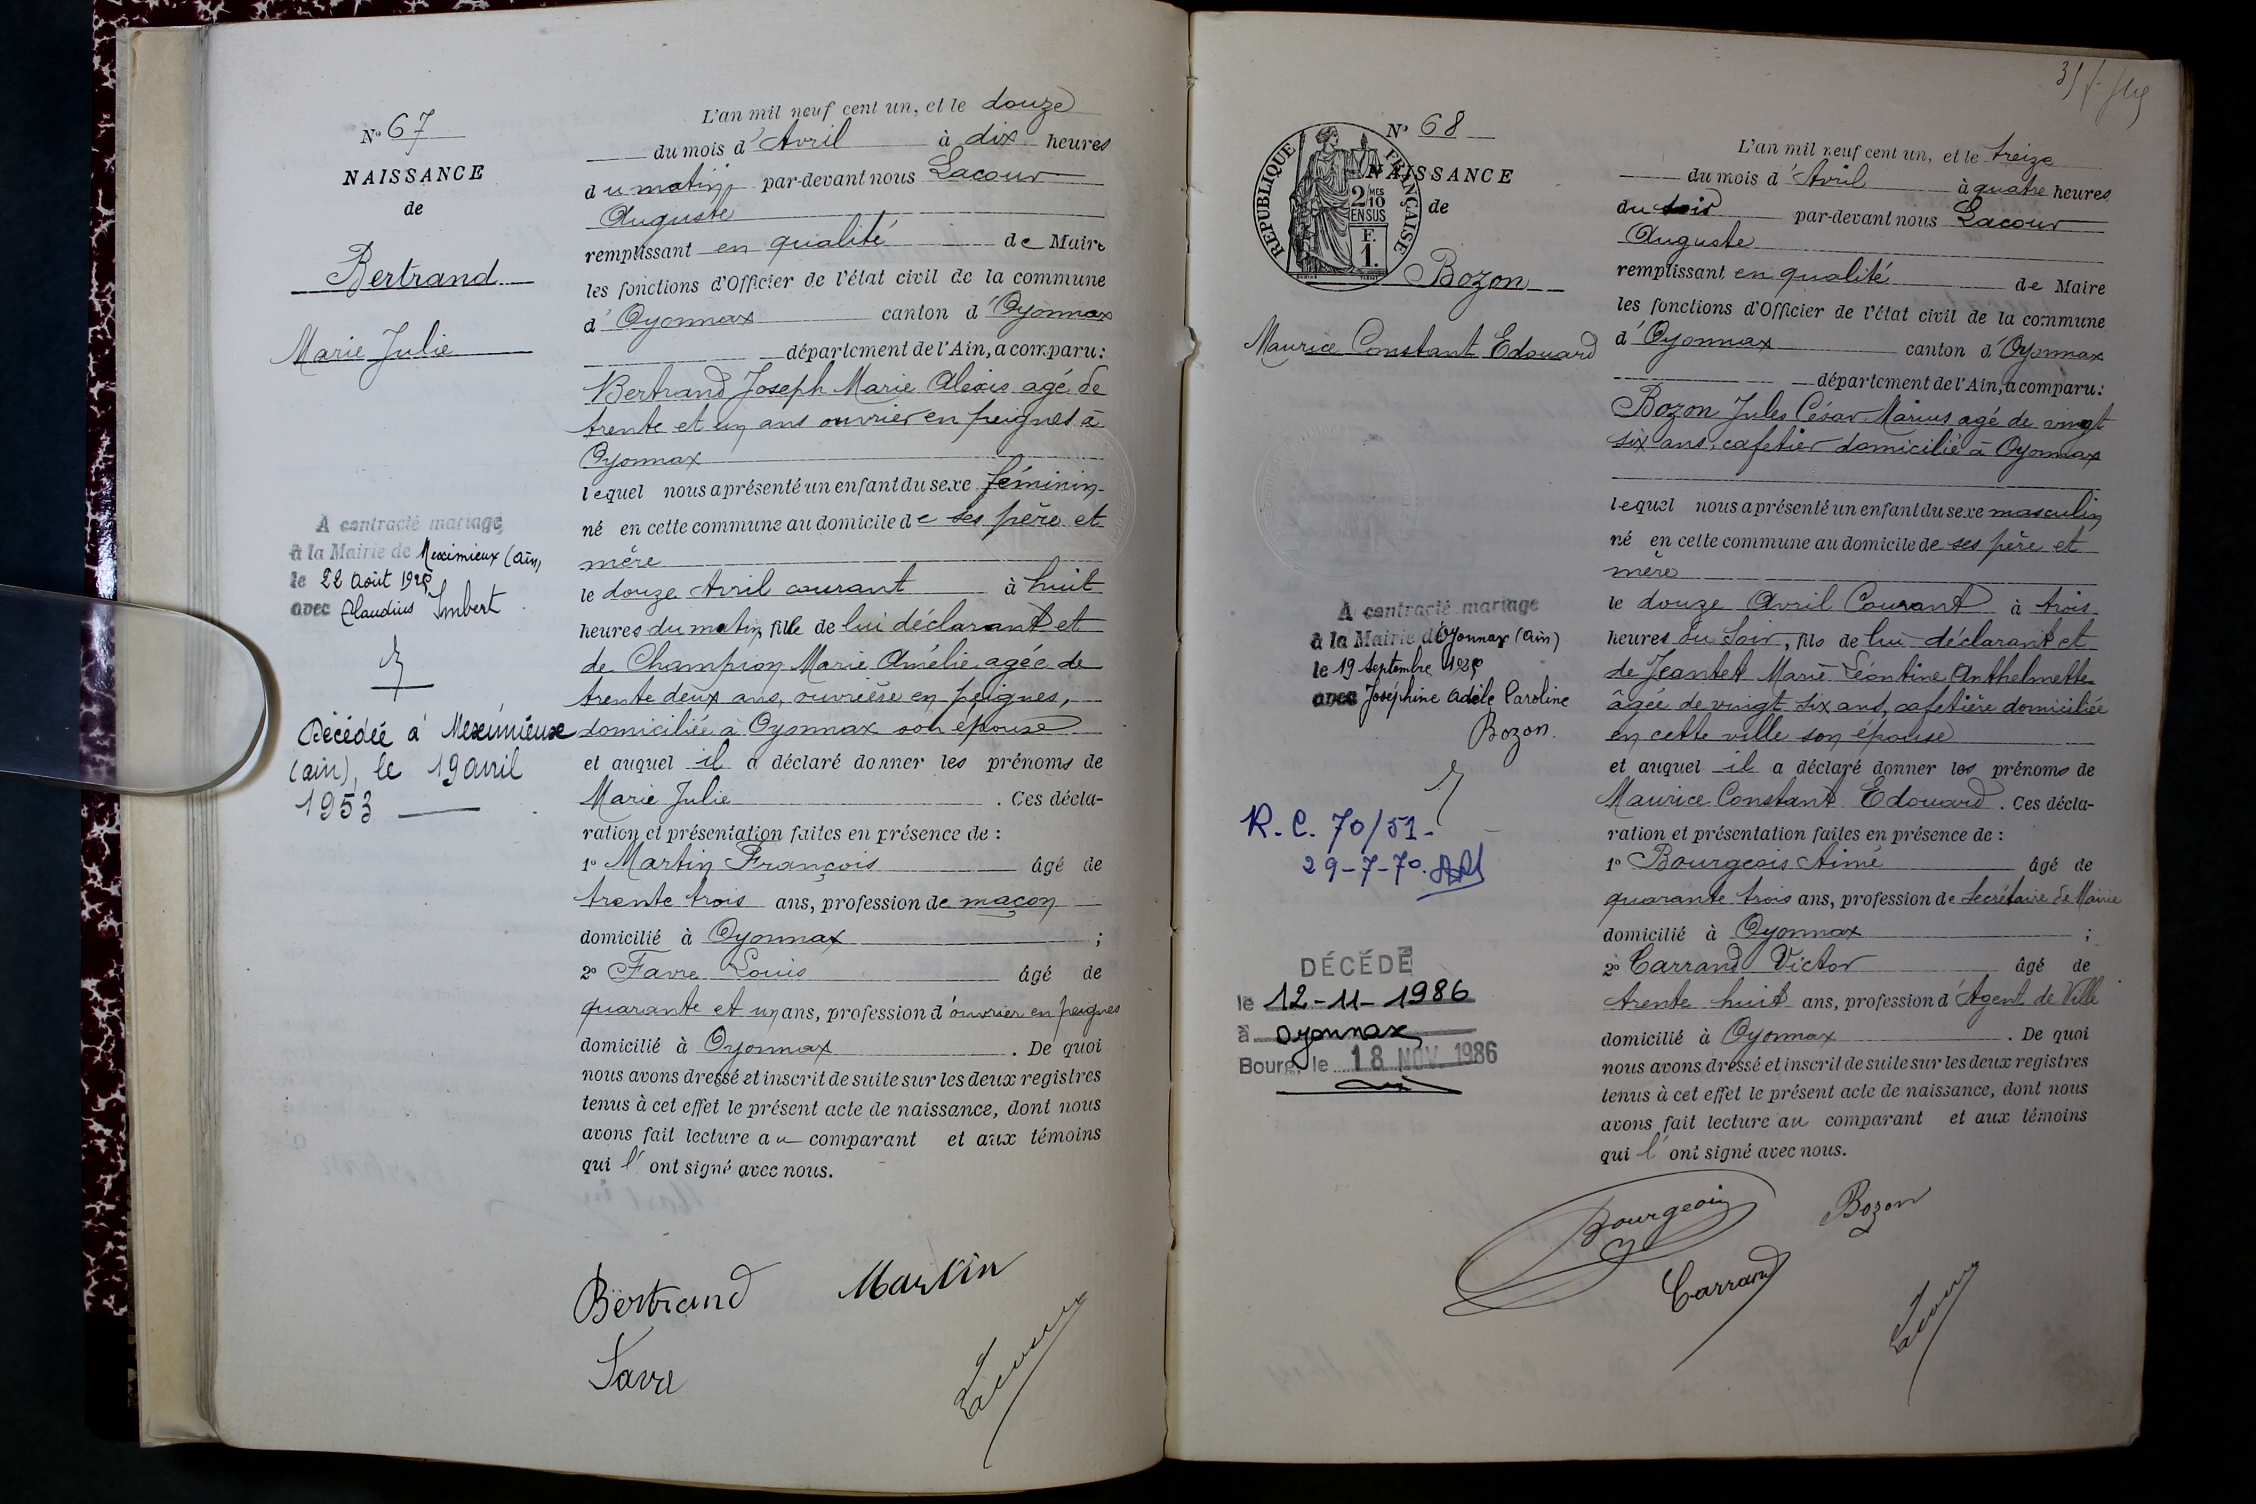 N° 67
NAISSANCE
de
Bertrand
Marie Julie
A contracté mariage
à la Mairie de Meximieux (Ain)
le 22 Août
avec Claudius Imbert
Décédée à Meximieux
(ain), le 19 avril
1953
L'an mil neuf cent un, et le douze
du mois d'Avril à dix heures
du matin, par-devant nous Lacour
Auguste
remplissant en qualité de Maire
les fonctions d'Officier de l'état civil de la commune
d'Oyonnax canton d'Oyonnax
département de l'Ain, a comparu:
Bertrand Joseph Marie Alexis agé de
trente et un ans ouvrier en peignes à
Oyonnax
lequel nous a présenté un enfant du sexe féminin
né en cette commune au domicile de ses père et
mère
le douze Avril courant à huit
heures du matin, fille de lui déclarant et
de Champion Marie Amélie agée de
trente deux ans, ouvrière en peignes,
domiciliée à Oyonnax son épouse
et auquel il a déclaré donner les prénoms de
Marie Julie . Ces décla-
ration et présentation faites en présence de :
1° Martin François âgé de
trente trois ans, profession de maçon
domicilié à Oyonnax ;
2° Favre Louis âgé de
quarante et un ans, profession d'ouvrier en peignes
domicilié à Oyonnax . De quoi
nous avons dressé et inscrit de suite sur les deux registres
tenus à cet effet le présent acte de naissance, dont nous
avons fait lecture au comparant et aux témoins
qui l'ont signé avec nous.
Bertrand Martin
Favre Lacour
N° 68
NAISSANCE
de
REPUBLIQUE FRANÇAISE
2 MES
10
EN SUS
F.
1.
Bozon
Maurice Constant Edouard
A contracté mariage
à la Mairie d'Oyonnax (Ain)
le 19 Septembre
avec Joséphine Adèle Caroline
Bozon.
R.C. 70/51-
29-7-70.
DÉCÉDÉ
le 12-11-1986
à Oyonnax
Bourg, le 18 NOV 1986
L'an mil neuf cent un, et le treize
du mois d'Avril à quatre heures
du soir par-devant nous Lacour
Auguste
remplissant en qualité de Maire
les fonctions d'Officier de l'état civil de la commune
d'Oyonnax canton d'Oyonnax
département de l'Ain, a comparu:
Bozon Jules César Marius agé de vingt
six ans, cafetier domicilié à Oyonnax
lequel nous a présenté un enfant du sexe masculin
né en cette commune au domicile de ses père et
mère
le douze Avril Courant à trois
heures du Soir, fils de lui déclarant et
de Jeantet Marie Léontine Anthelmette
âgée de vingt six ans, cafetière domiciliée
en cette ville son épouse
et auquel il a déclaré donner les prénoms de
Maurice Constant Edouard . Ces décla-
ration et présentation faites en présence de :
1° Bourgeois Aimé âgé de
quarante trois ans, profession de Secrétaire de Mairie
domicilié à Oyonnax ;
2° Carrand Victor âgé de
trente huit ans, profession d'Agent de Ville
domicilié à Oyonnax . De quoi
nous avons dressé et inscrit de suite sur les deux registres
tenus à cet effet le présent acte de naissance, dont nous
avons fait lecture au comparant et aux témoins
qui l'ont signé avec nous.
Bourgeois Bozon
Carrand Lacour